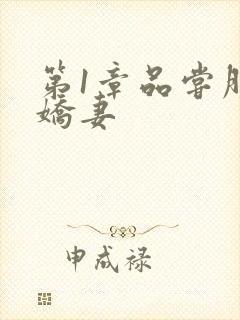 第1章品尝
嬌妻
申成禄